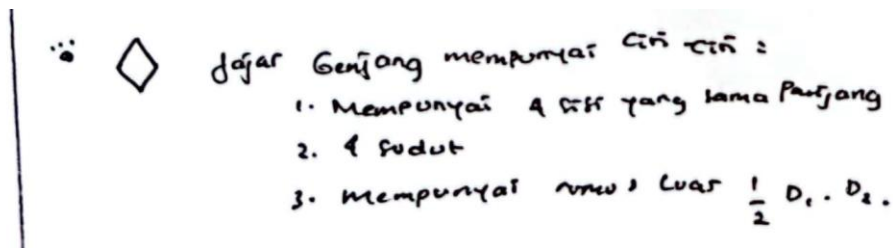 Jajar Genjang mempunyai ciri ciri :
1. Mempunyai 4 sisi yang sama Panjang
2. 4 sudut
3. Mempunyai rumus Luas 1/2 D₁ . D₂ .